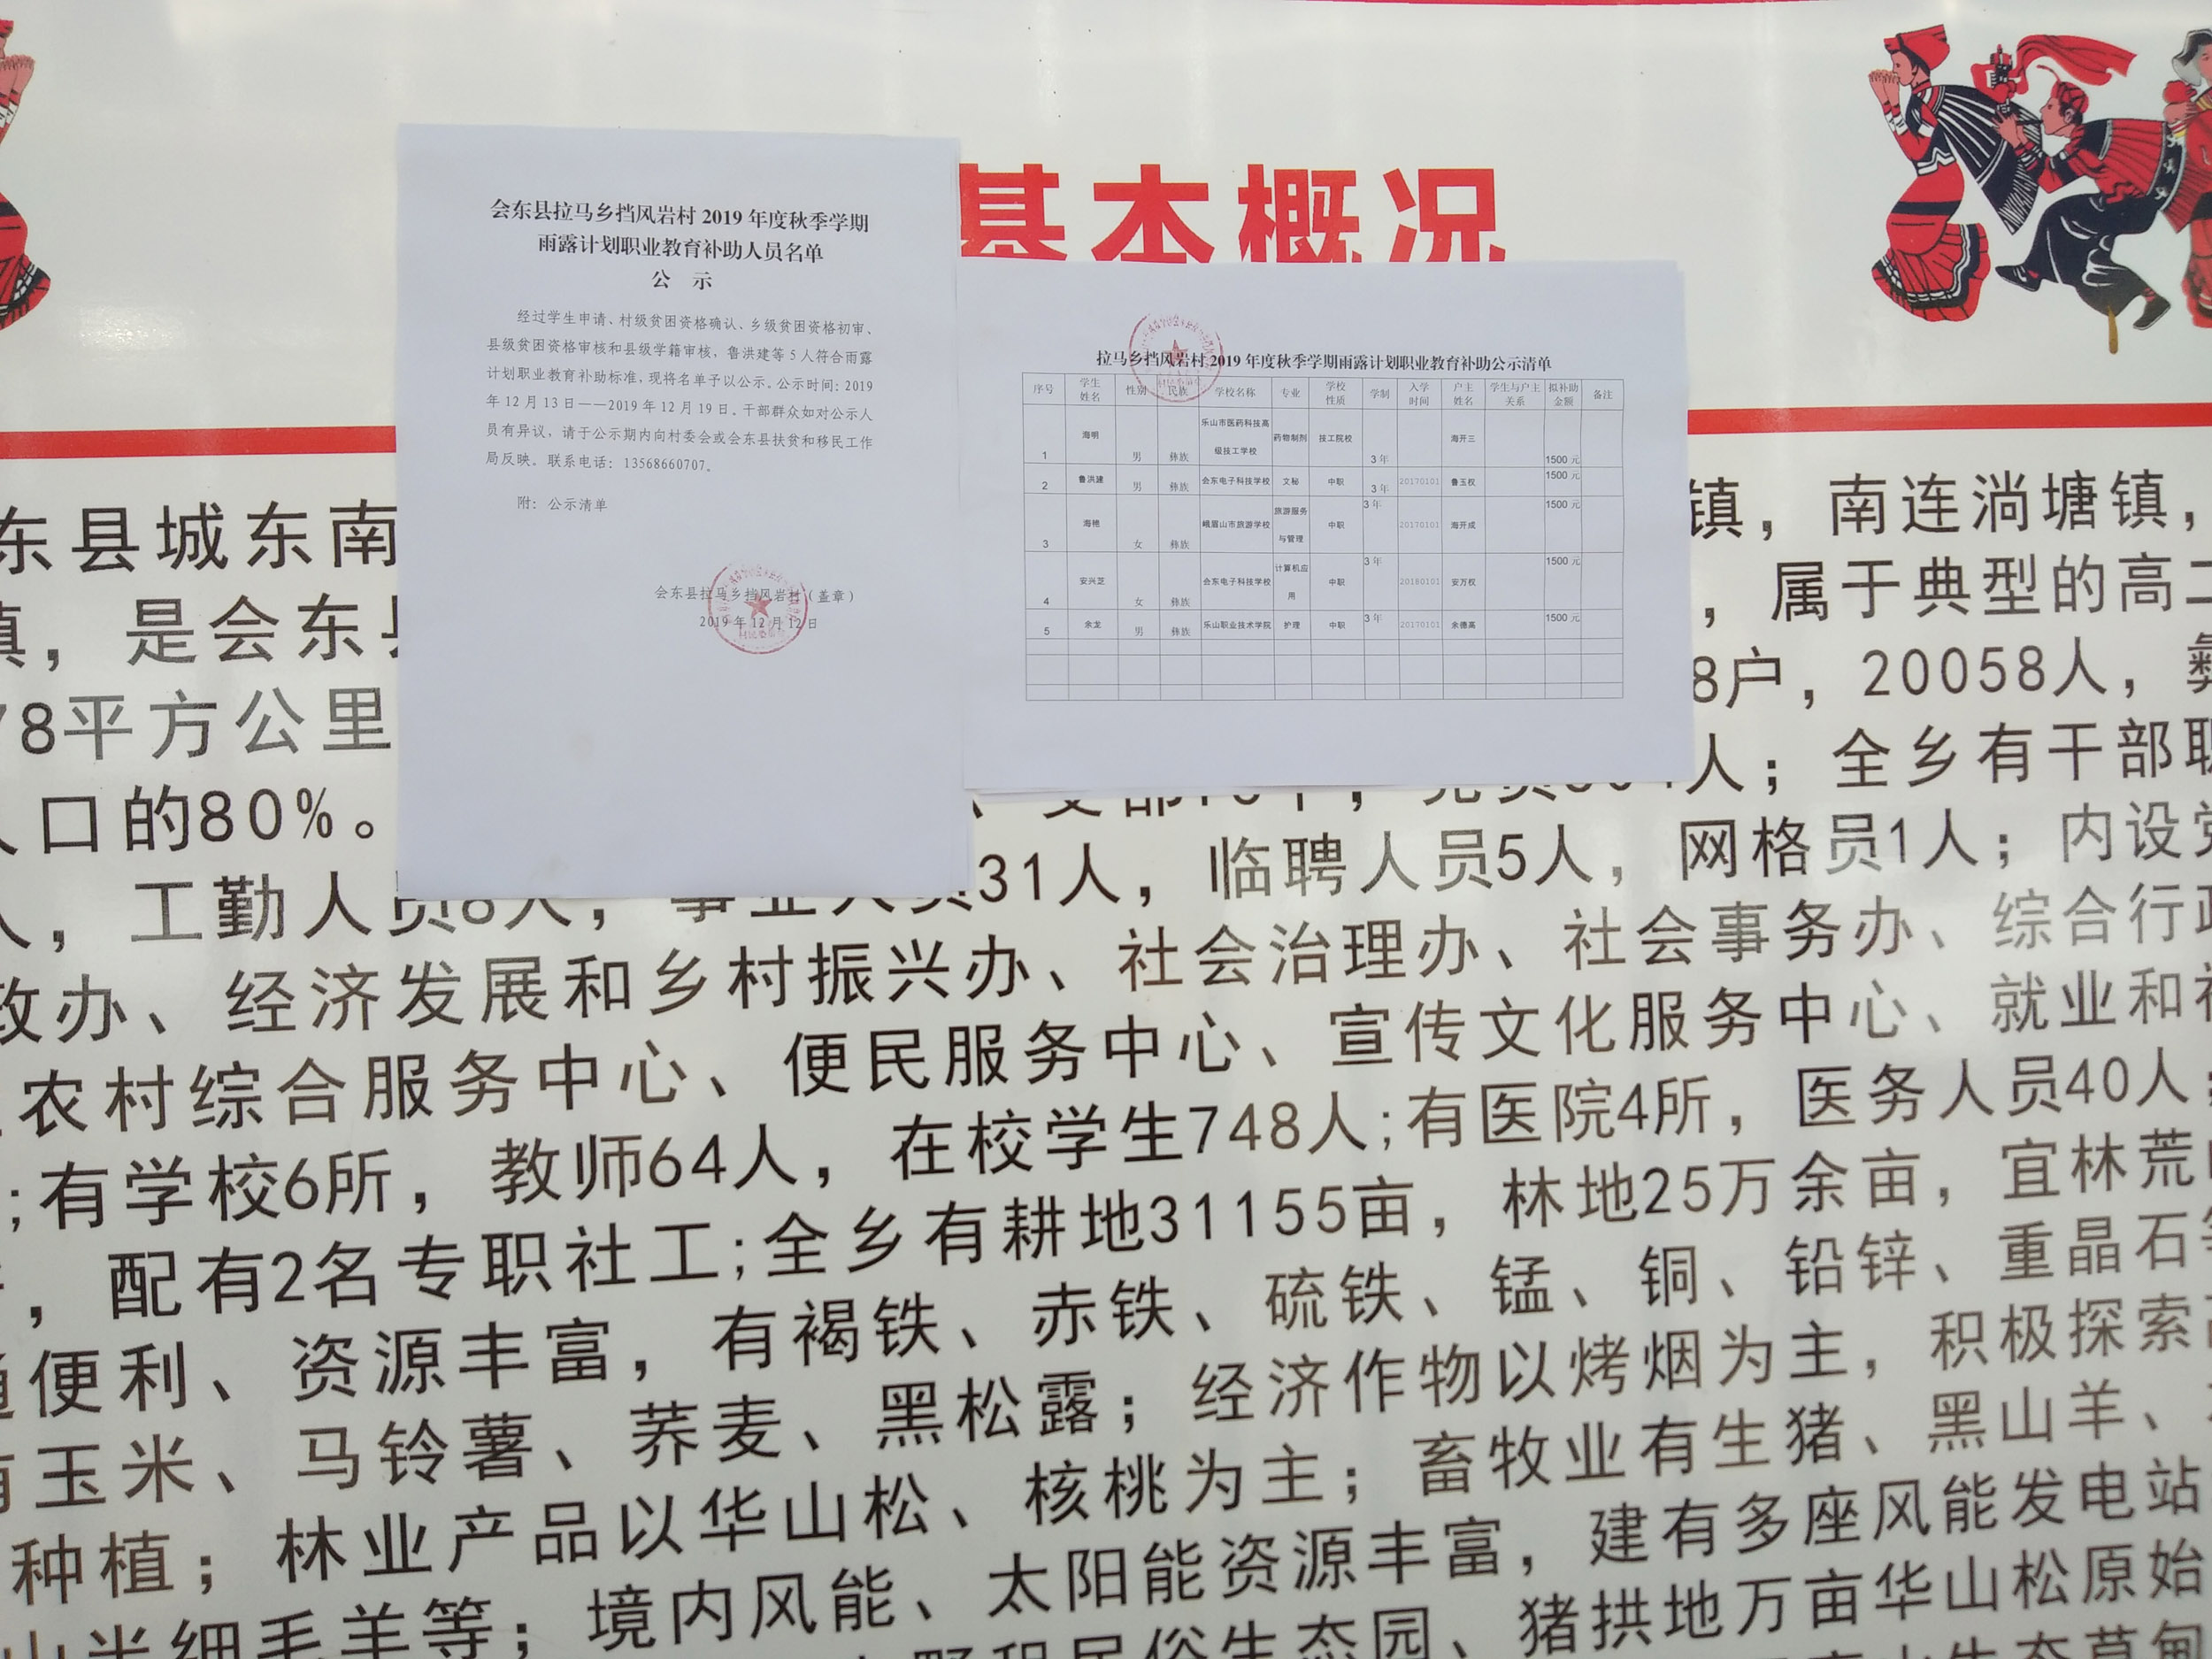 基本概况
会东县拉马乡挡风岩村 2019 年度秋季学期
雨露计划职业教育补助人员名单
公 示
经过学生申请、村级贫困资格确认、乡级贫困资格初审、
县级贫困资格审核和县级学籍审核，鲁洪建等 5 人符合雨露
计划职业教育补助标准，现将名单予以公示。公示时间：2019
年 12 月 13 日——2019 年 12 月 19 日。干部群众如对公示人
员有异议，请于公示期内向村委会或会东县扶贫和移民工作
局反映。联系电话：13568660707。
附：公示清单
会东县拉马乡挡风岩村（盖章）
2019 年 12 月 12 日
拉马乡挡风岩村 2019 年度秋季学期雨露计划职业教育补助公示清单
序号 学生姓名 性别 民族 学校名称 专业 学校性质 学制 入学时间 户主姓名 学生与户主关系 拟补助金额 备注
1 海明 男 彝族 乐山市医药科技高级技工学校 药物制剂 技工院校 3 年 海开三 1500 元
2 鲁洪建 男 彝族 会东电子科技学校 文秘 中职 3 年 20170101 鲁玉权 1500 元
3 海艳 女 彝族 峨眉山市旅游学校 旅游服务与管理 中职 3 年 20170101 海开成 1500 元
4 安兴芝 女 彝族 会东电子科技学校 计算机应用 中职 3 年 20180101 安万权 1500 元
5 余龙 男 彝族 乐山职业技术学院 护理 中职 3 年 20170101 余德高 1500 元
东县城东南 镇，南连淌塘镇，
镇，是会东县 ，属于典型的高二
78平方公里 8户，20058人，彝
人口的80%。 人；全乡有干部职
人，工勤人员8人，事业人员31人，临聘人员5人，网格员1人；内设党
政办、经济发展和乡村振兴办、社会治理办、社会事务办、综合行政
农村综合服务中心、便民服务中心、宣传文化服务中心、就业和社
;有学校6所，教师64人，在校学生748人;有医院4所，医务人员40人;
，配有2名专职社工;全乡有耕地31155亩，林地25万余亩，宜林荒山
通便利、资源丰富，有褐铁、赤铁、硫铁、锰、铜、铅锌、重晶石等
有玉米、马铃薯、荞麦、黑松露；经济作物以烤烟为主，积极探索高
种植；林业产品以华山松、核桃为主；畜牧业有生猪、黑山羊、
山半细毛羊等；境内风能、太阳能资源丰富，建有多座风能发电站
民俗生态园、猪拱地万亩华山松原始
生态草甸